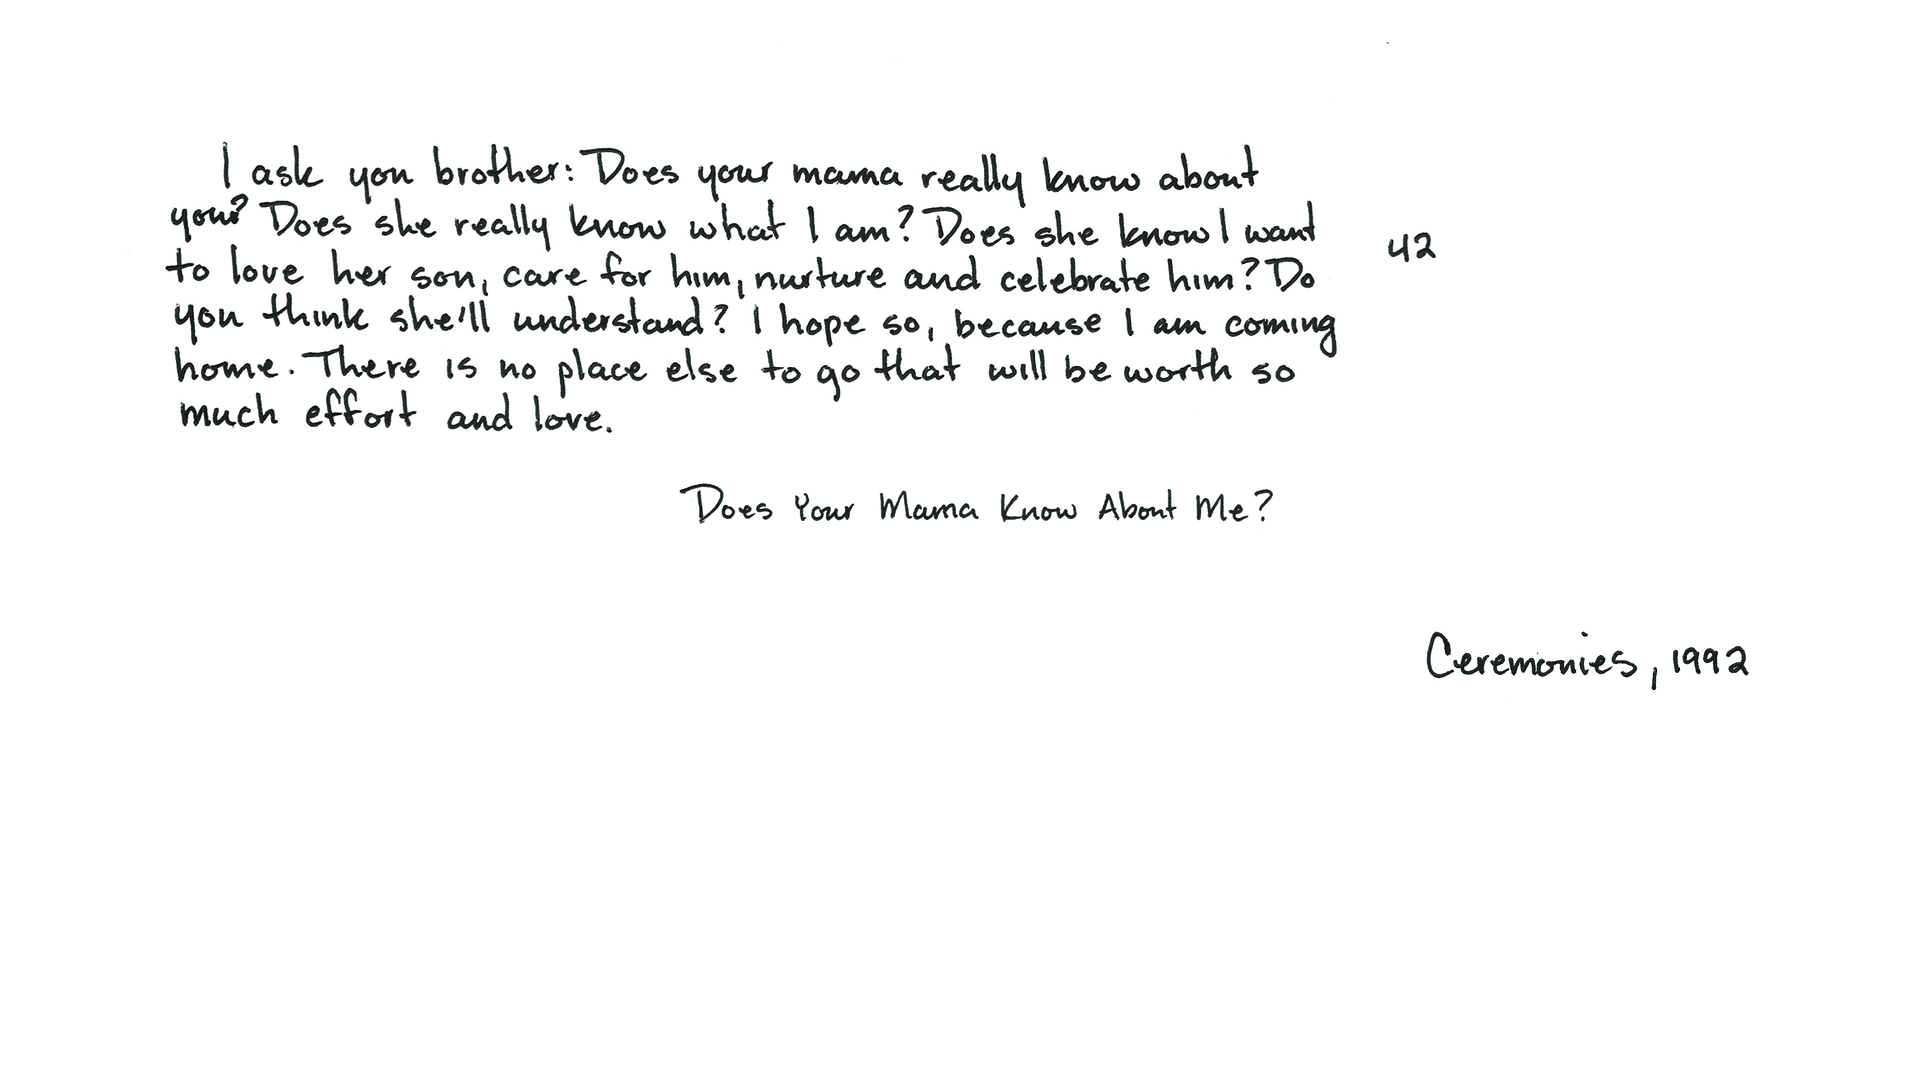 I ask you brother: Does your mama really know about
you? Does she really know what I am? Does she know I want
to love her son, care for him, nurture and celebrate him? Do
42
you think she'll understand? I hope so, because I am coming
home. There is no place else to go that will be worth so
much effort and love.
Does Your Mama Know About Me?
Ceremonies, 1992